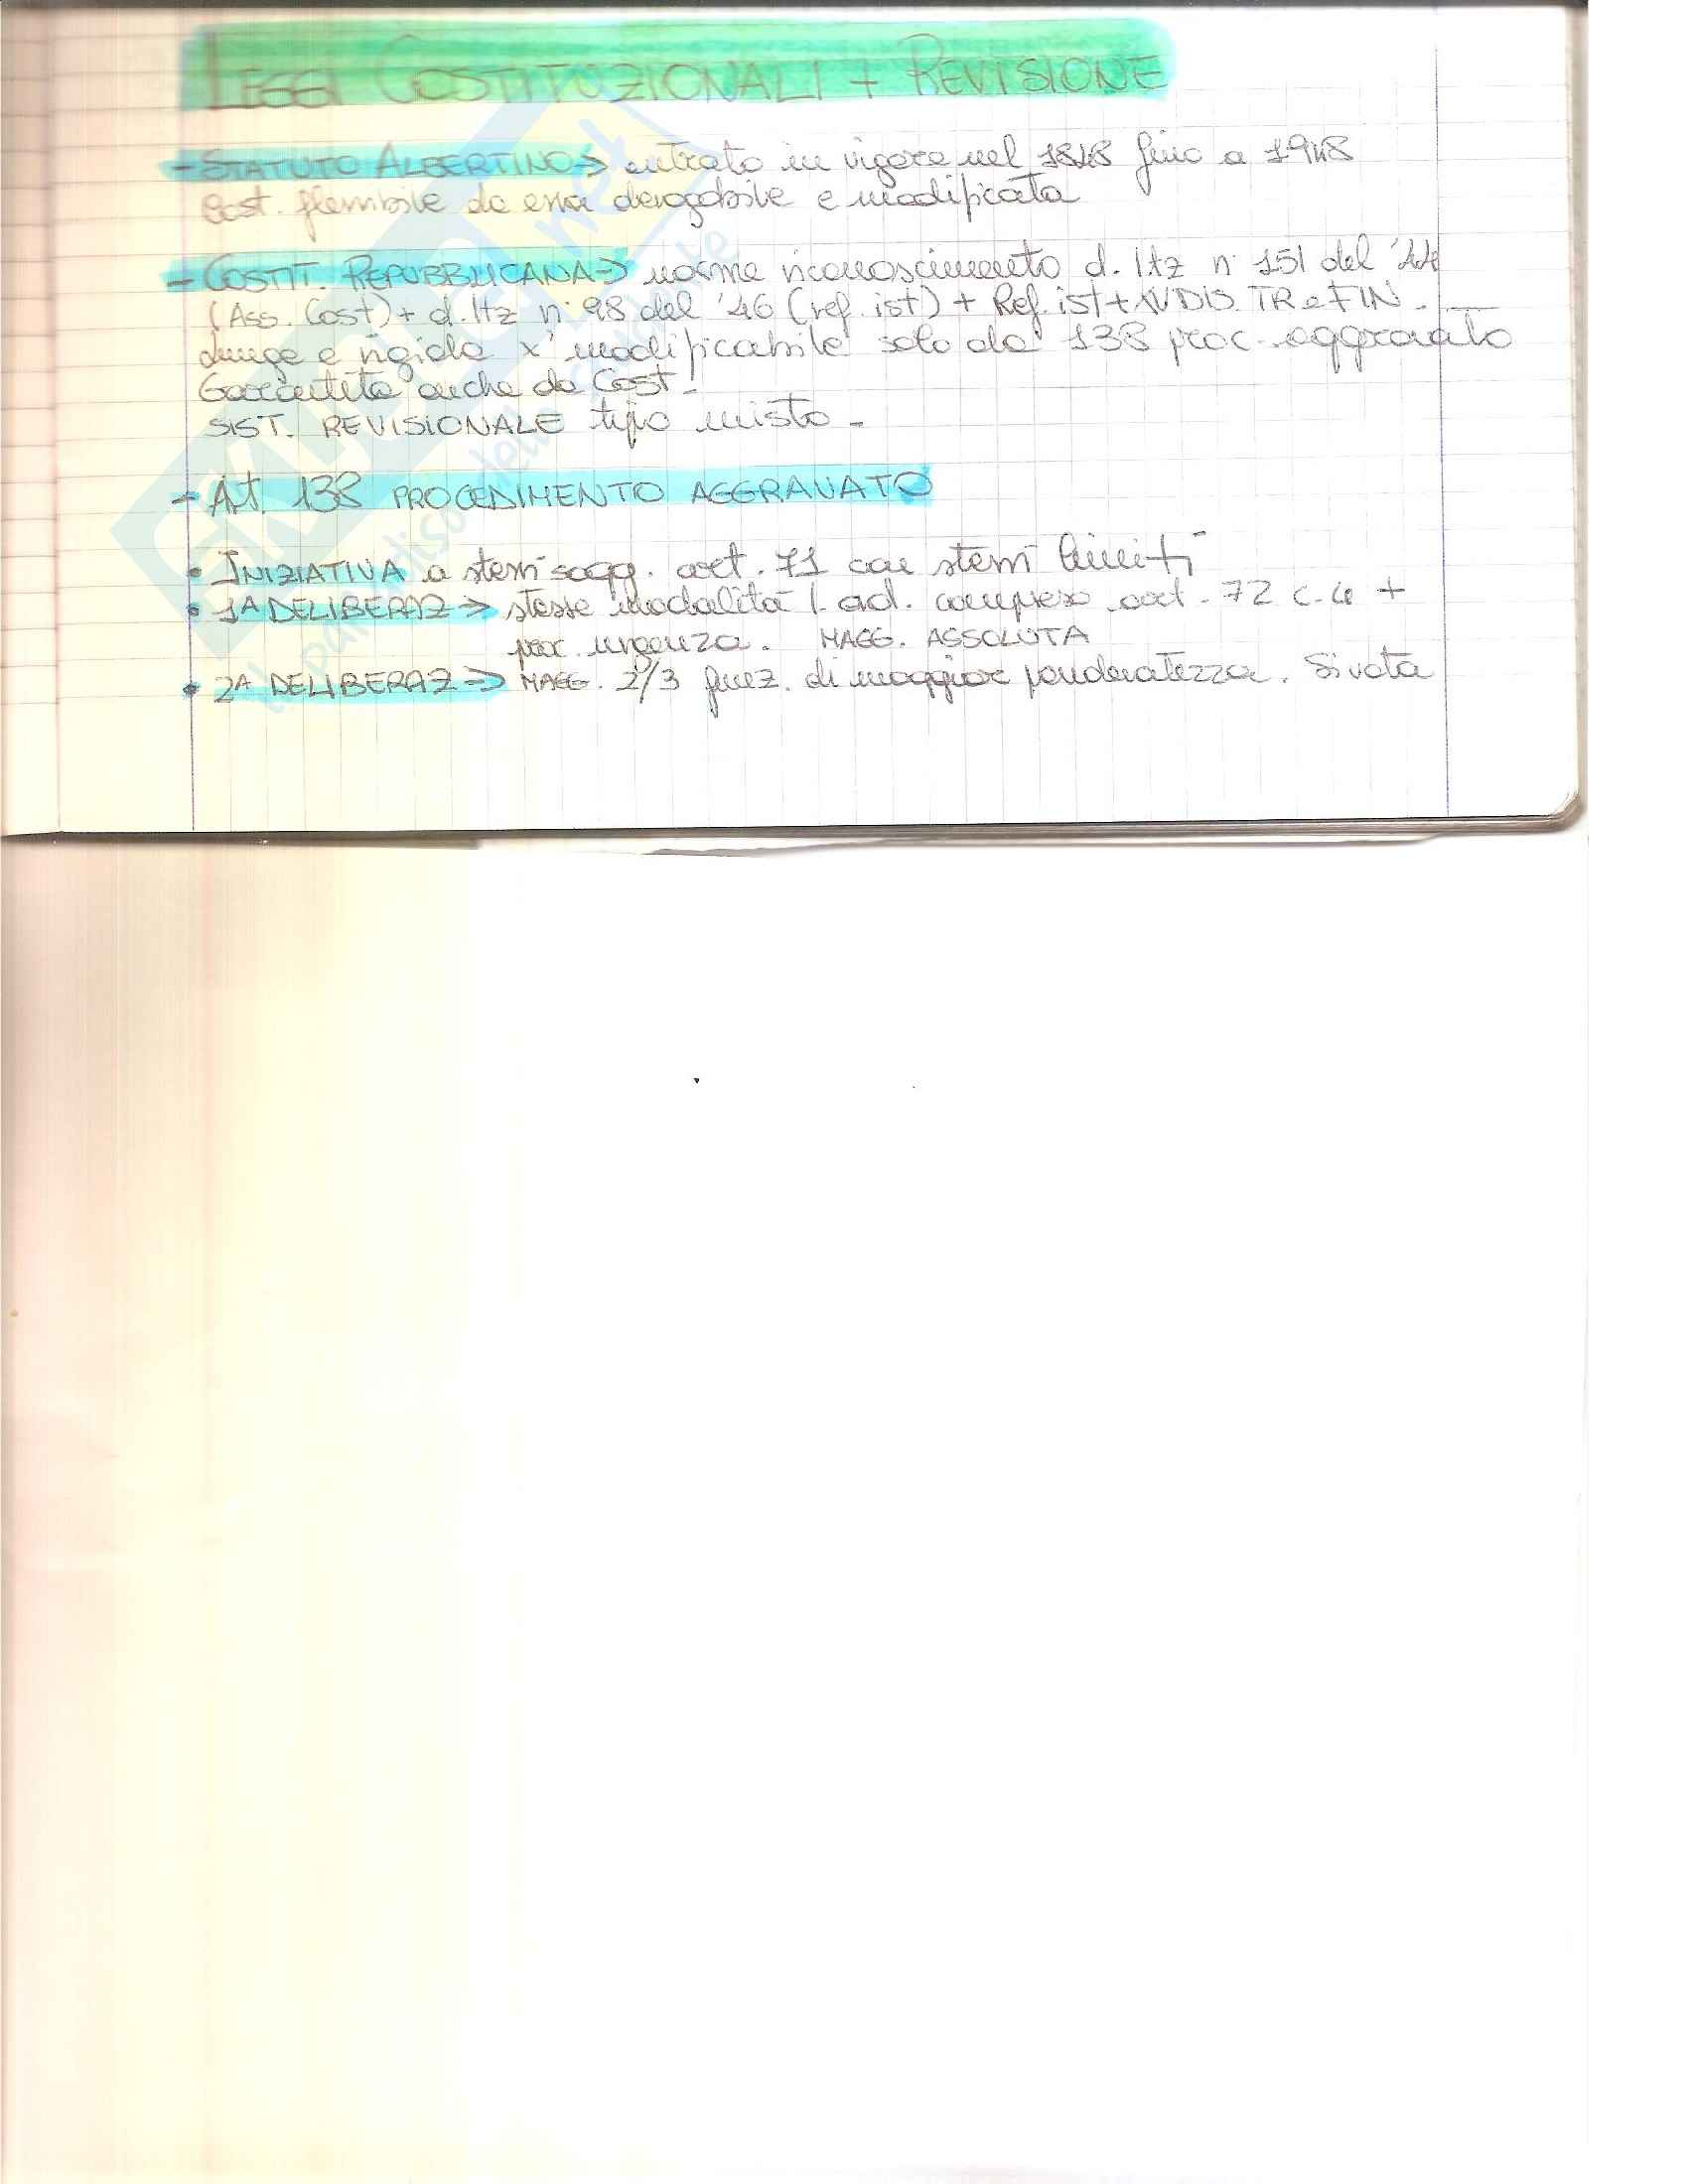 LEGGI COSTITUZIONALI + REVISIONE
- STATUTO ALBERTINO → entrato in vigore nel 1848 fino a 1948
Cost. flessibile da essa derogabile e modificata
- COSTIT. REPUBBLICANA → norme riconoscimento d. ltz n. 151 del '44
(Ass. Cost) + d. ltz n. 98 del '46 (ref. ist) + Ref. ist + XV DIS. TR e FIN.
Lunga e rigida x' modificabile solo da 138 proc. aggravato
Garantita anche da Cost.
SIST. REVISIONALE tipo misto -
- Art. 138 PROCEDIMENTO AGGRAVATO
• INIZIATIVA a stessi sogg. art. 71 con stessi limiti
• 1ª DELIBERAZ → stesse modalità l. ad. compreso art. 72 c. 4 +
proc. urgenza. MAGG. ASSOLUTA
• 2ª DELIBERAZ → MAGG. 2/3 funz. di maggior ponderatezza. Si vota
SKUOLA.net
il paradiso dello studente